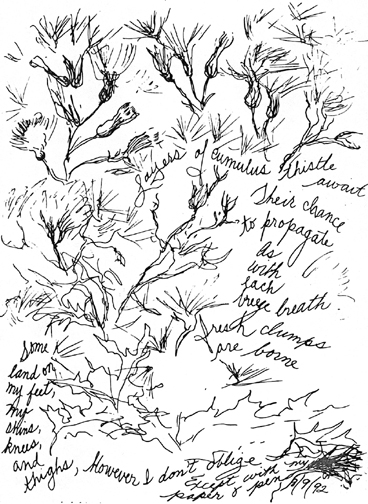 Layers of cumulus thistle
await
Their chance
to propagate
As
with
each
breeze breath
fresh clumps
are borne
Some
land on
my feet,
my
shins,
knees,
and
thighs, However I don't oblige
except with my
paper & pen 9/9/92